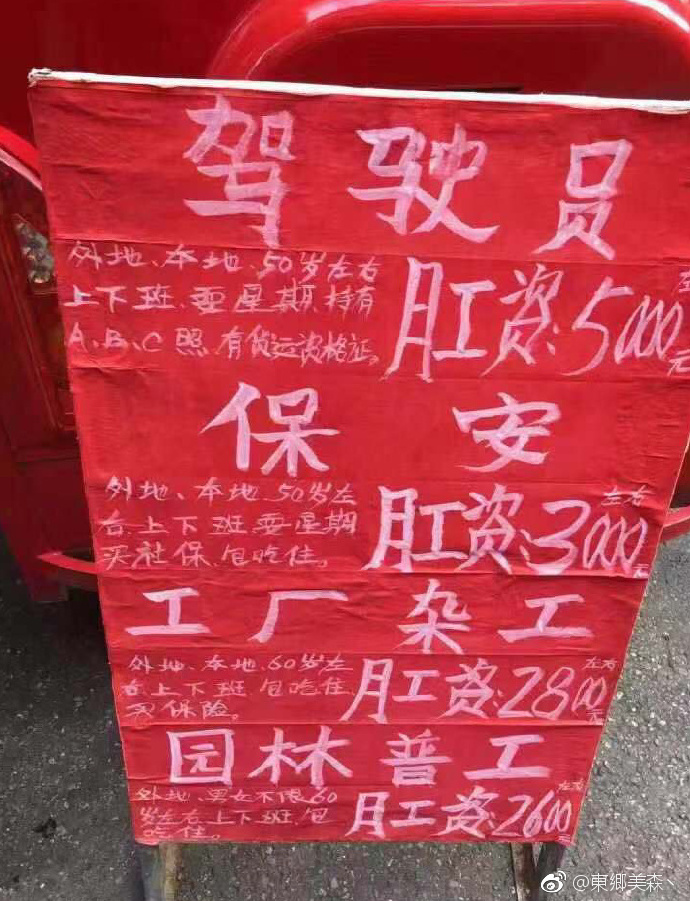 驾驶员
外地、本地、50岁左右
上下班、要星期、持有
A、B、C照、有货运资格证。
月工资:5000元左右
保安
外地、本地、50岁左
右、上下班、要星期
买社保、包吃住。
月工资:3000元左右
工厂杂工
外地、本地、60岁左
右上下班、包吃住、
买保险。
月工资:2800元左右
园林普工
外地、男女不限60
岁左右上下班、包
吃住。
月工资:2600元左右
@東鄉美森丶